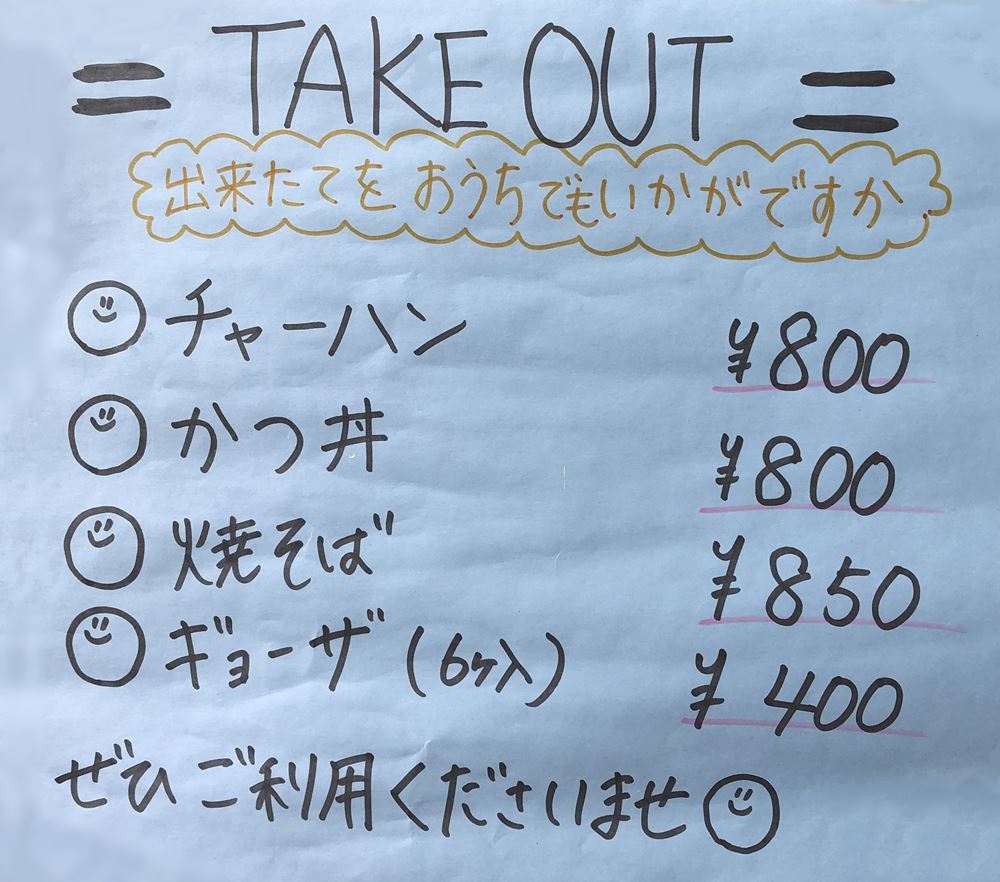 = TAKE OUT =
出来たてを おうちでもいかがですか
チャーハン ¥800
かつ丼 ¥800
焼そば ¥850
ギョーザ (6ヶ入) ¥400
ぜひ ご利用くださいませ